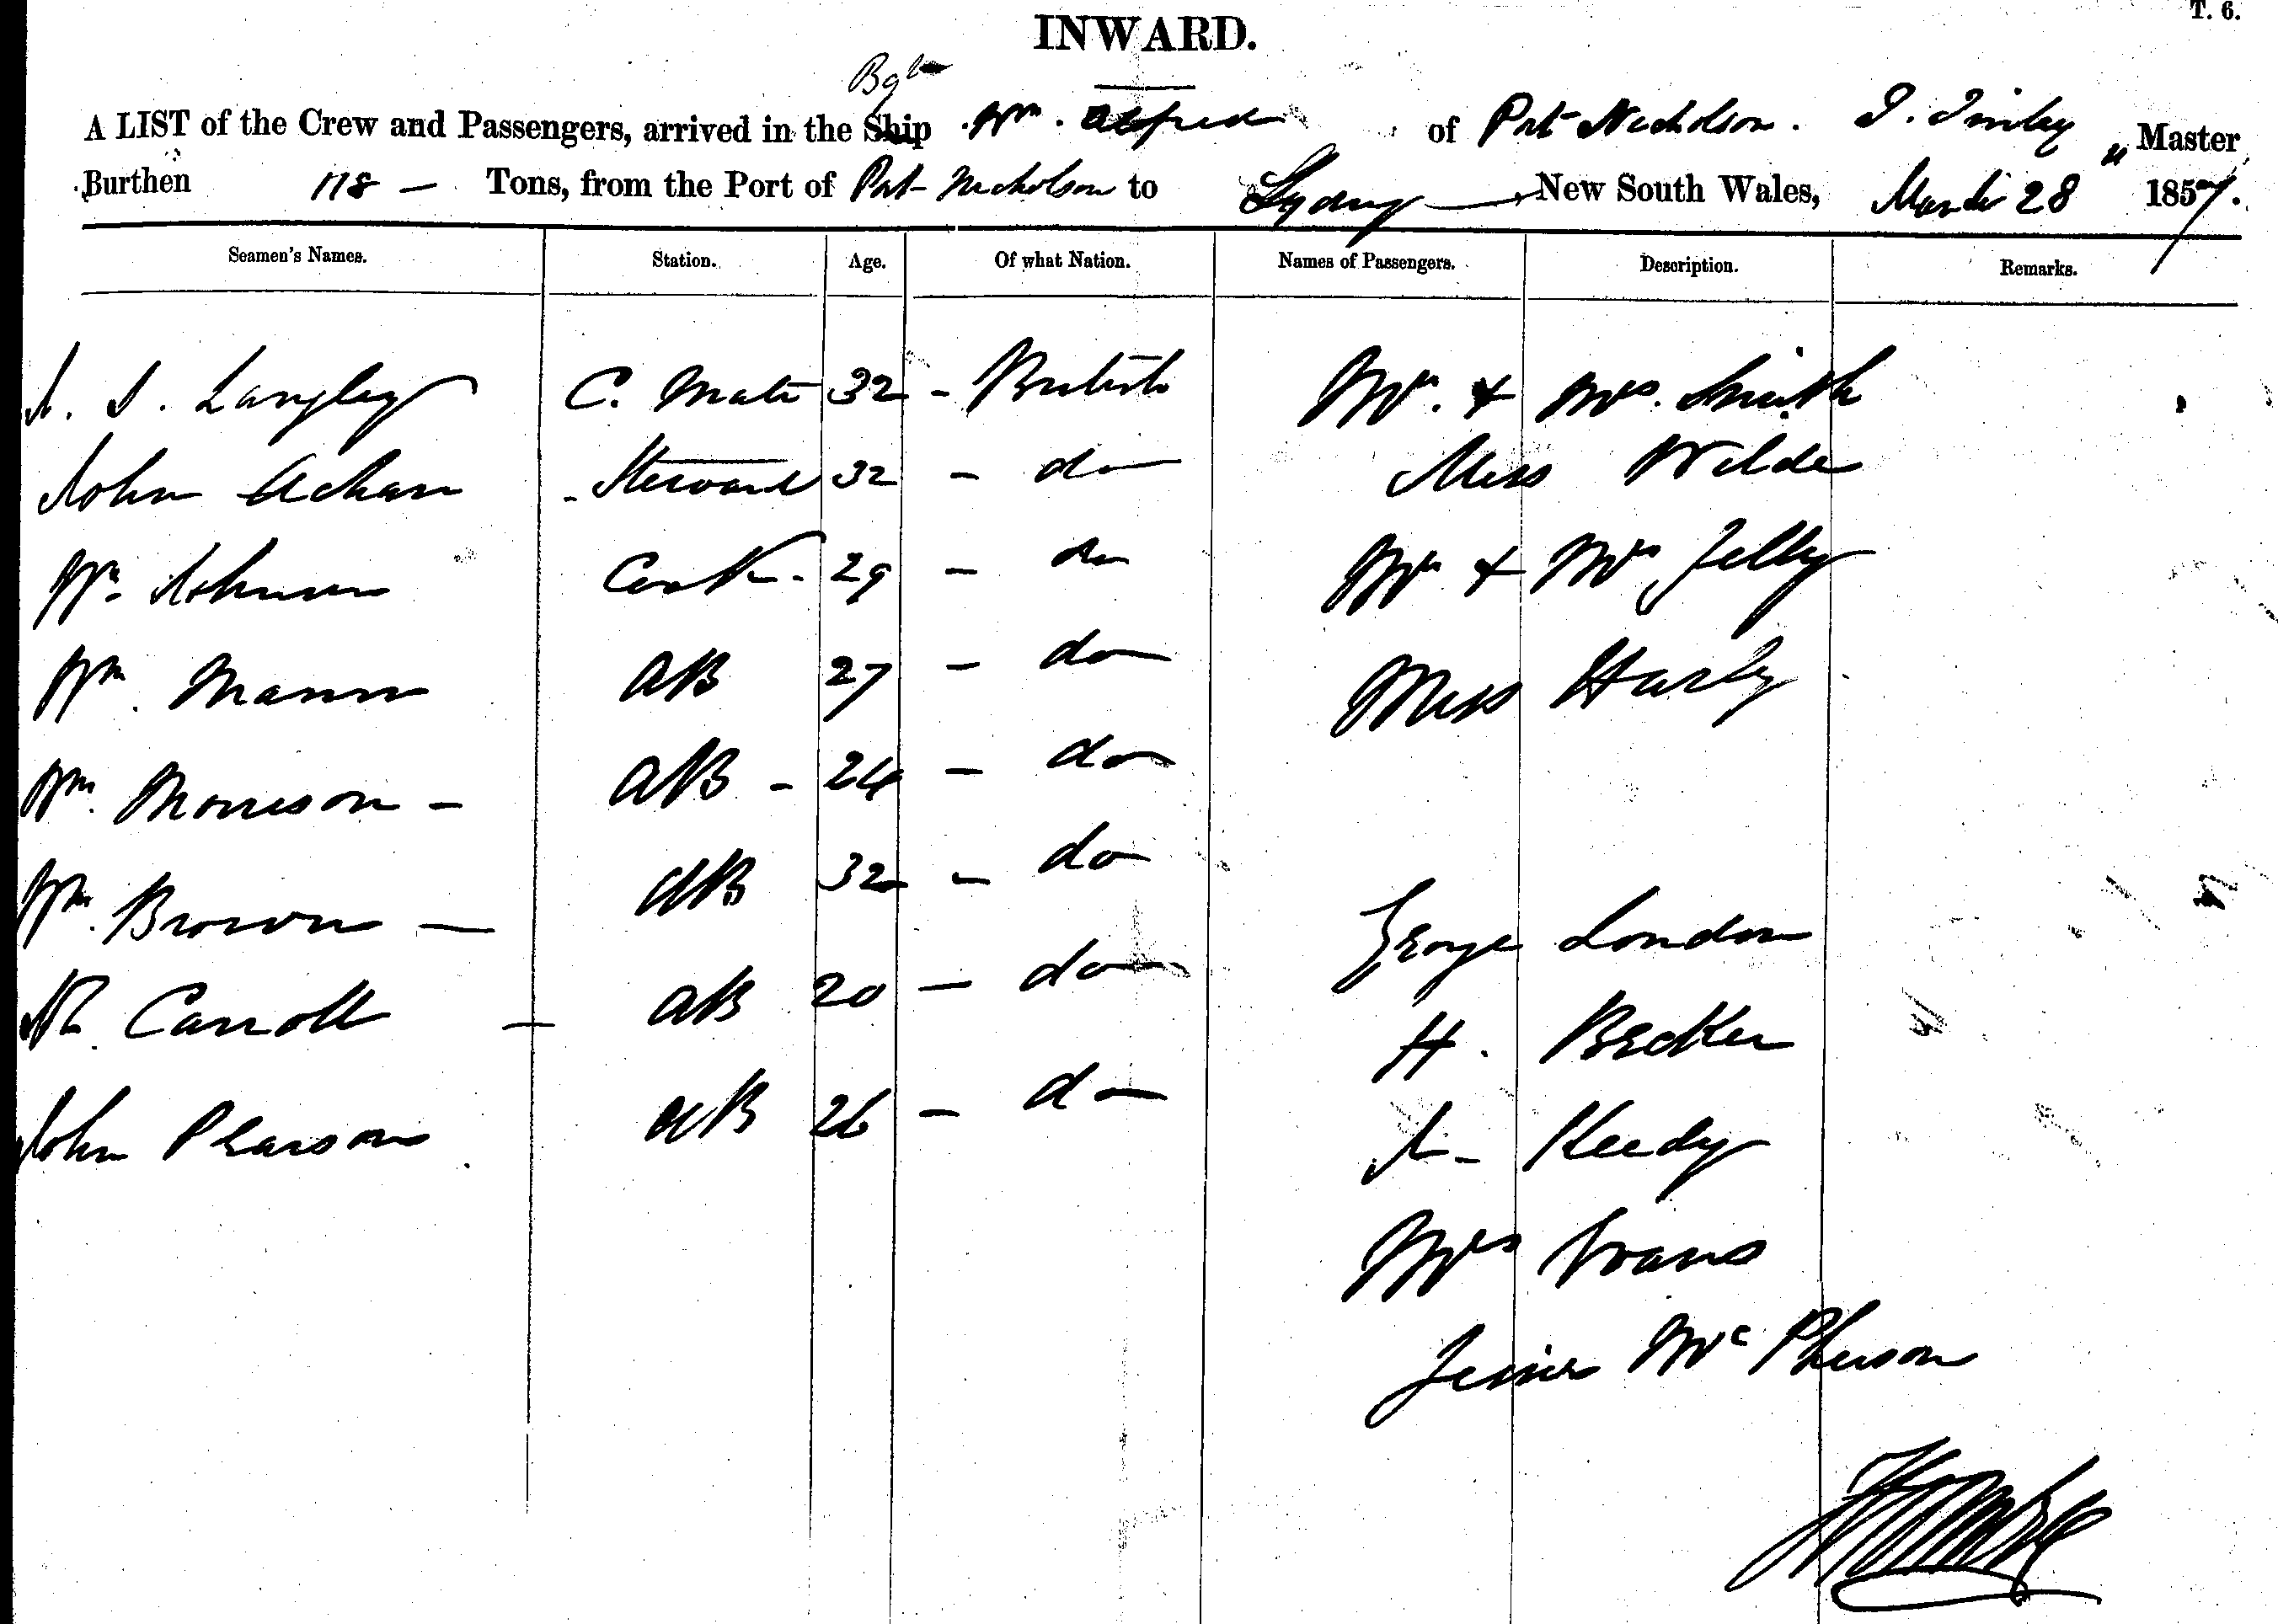 T. 6.
INWARD.
Bgtn
A LIST of the Crew and Passengers, arrived in the Ship Wm. Alfred of Port Nicholson. Master
Burthen 178 — Tons, from the Port of Port Nicholson to Sydney — New South Wales, March 28 1857.
Seamen's Names. Station. Age. Of what Nation. Names of Passengers. Description. Remarks.
Langley C. Mate 32 - British Mr. & Mrs. Smith
John - Steward 32 - do Miss Wilde
Wm. Johnson Cook - 29 - do Mr & Mrs Jelly
Wm. Mann AB 27 - do Miss
Wm. Morrison - AB - 24 - do
Wm. Brown - AB 32 - do
George London
Carroll - AB 20 - do
H. Becker
John Pearson AB 26 - do
Keedy
Mrs Evans
McPherson